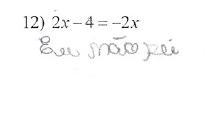 12) 2x – 4 = –2x
Eu não sei